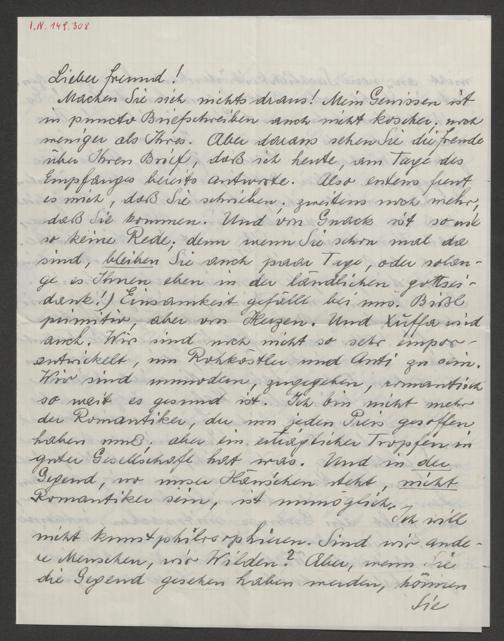 I.N. 149.308
Lieber Freund!
Machen Sie sich nichts draus! Mein Gewissen ist
in puncto Briefschreiben auch nicht koscher, noch
weniger als Ihres. Aber daraus sehen Sie die Freude
über Ihren Brief, daß ich heute, am Tage des
Empfanges bereits antworte. Also erstens freut
es mich, daß Sie schrieben, zweitens noch mehr,
daß Sie kommen. Und von Gnack ist sowie
so keine Rede, denn wenn Sie schon mal da
sind, bleiben Sie auch paar Tage, oder solan-
ge es Ihnen eben in der ländlichen, gottsei-
dank!) Einsamkeit gefällt bei uns. Bißl
primitiv, aber von Herzen. Und wird
auch. Wir sind noch nicht so sehr empor-
entwickelt, um Rohköstler und Anti zu sein.
Wir sind unmodern, zugegeben, romantisch
so weit es gesund ist. Ich bin nicht mehr
der Romantiker, der um jeden Preis gesoffen
haben muß, aber ein erträglicher Tropfen in
guter Gesellschaft hat was. Und in der
Gegend, wo unser Häuschen steht, nicht
Romantiker sein, ist unmöglich. Ich will
nicht kunstphilosophieren. Sind wir ande-
re Menschen, wir Wilden? Aber, wenn Sie
die Gegend gesehen haben werden, können
Sie